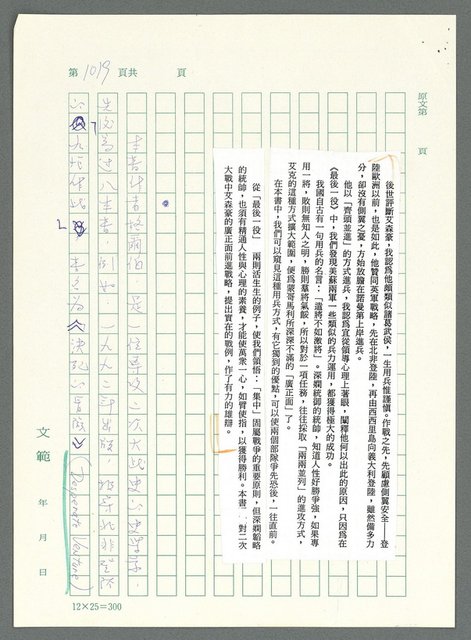 第1019頁共　頁
原文第　頁
後世評斷艾森豪，我認爲他頗類似諸葛武侯，一生用兵惟謹愼。作戰之先，先顧慮側翼安全——登
陸歐洲以前，也是如此，他贊同英軍戰略，先在北非登陸，再由西西里島向義大利登陸，雖然備多力
分，却沒有側翼之憂，方始放膽在諾曼第上岸進兵。
他以「齊頭並進」的方式進兵，我認爲宜從領導心理上著眼，闡釋他何以出此的原因，只因爲在
《最後一役》中，我們發現美蘇兩軍一些類似的兵力運用，都獲得極大的成功。
我國自古有一句用兵的名言：「遣將不如激將」。深嫻統御的統帥，知道人性好勝爭強，如果專
用一將，敗則無知人之明，勝則羣將氣餒，所以對於一項任務，往往採取「兩兩並列」的進攻方式，
艾克的這種方式擴大範圍，便爲蒙哥馬利所深深不滿的「廣正面」了。
在本書中，我們可以窺見這種用兵方式，有它獨到的優點，可以使兩個部隊爭先恐後，一往直前。
從「最後一役」　兩則活生生的例子，使我們領悟：「集中」固屬戰爭的重要原則，但深嫻韜略
的統帥，也須有精通人性與心理的素養，才能使萬衆一心，如臂使指，以獲得勝利。本書　對二次
大戰中艾森豪的廣正面前進戰略，提出實在的戰例，作了有力的雄辯。
本書作者
是一位專攻二次大戰史的史學家，
先後寫過八本書，
一九九二年出版
北非登陸
《決死的冒險》(Desperate Venture)
文範　年　月　日
12×25=300